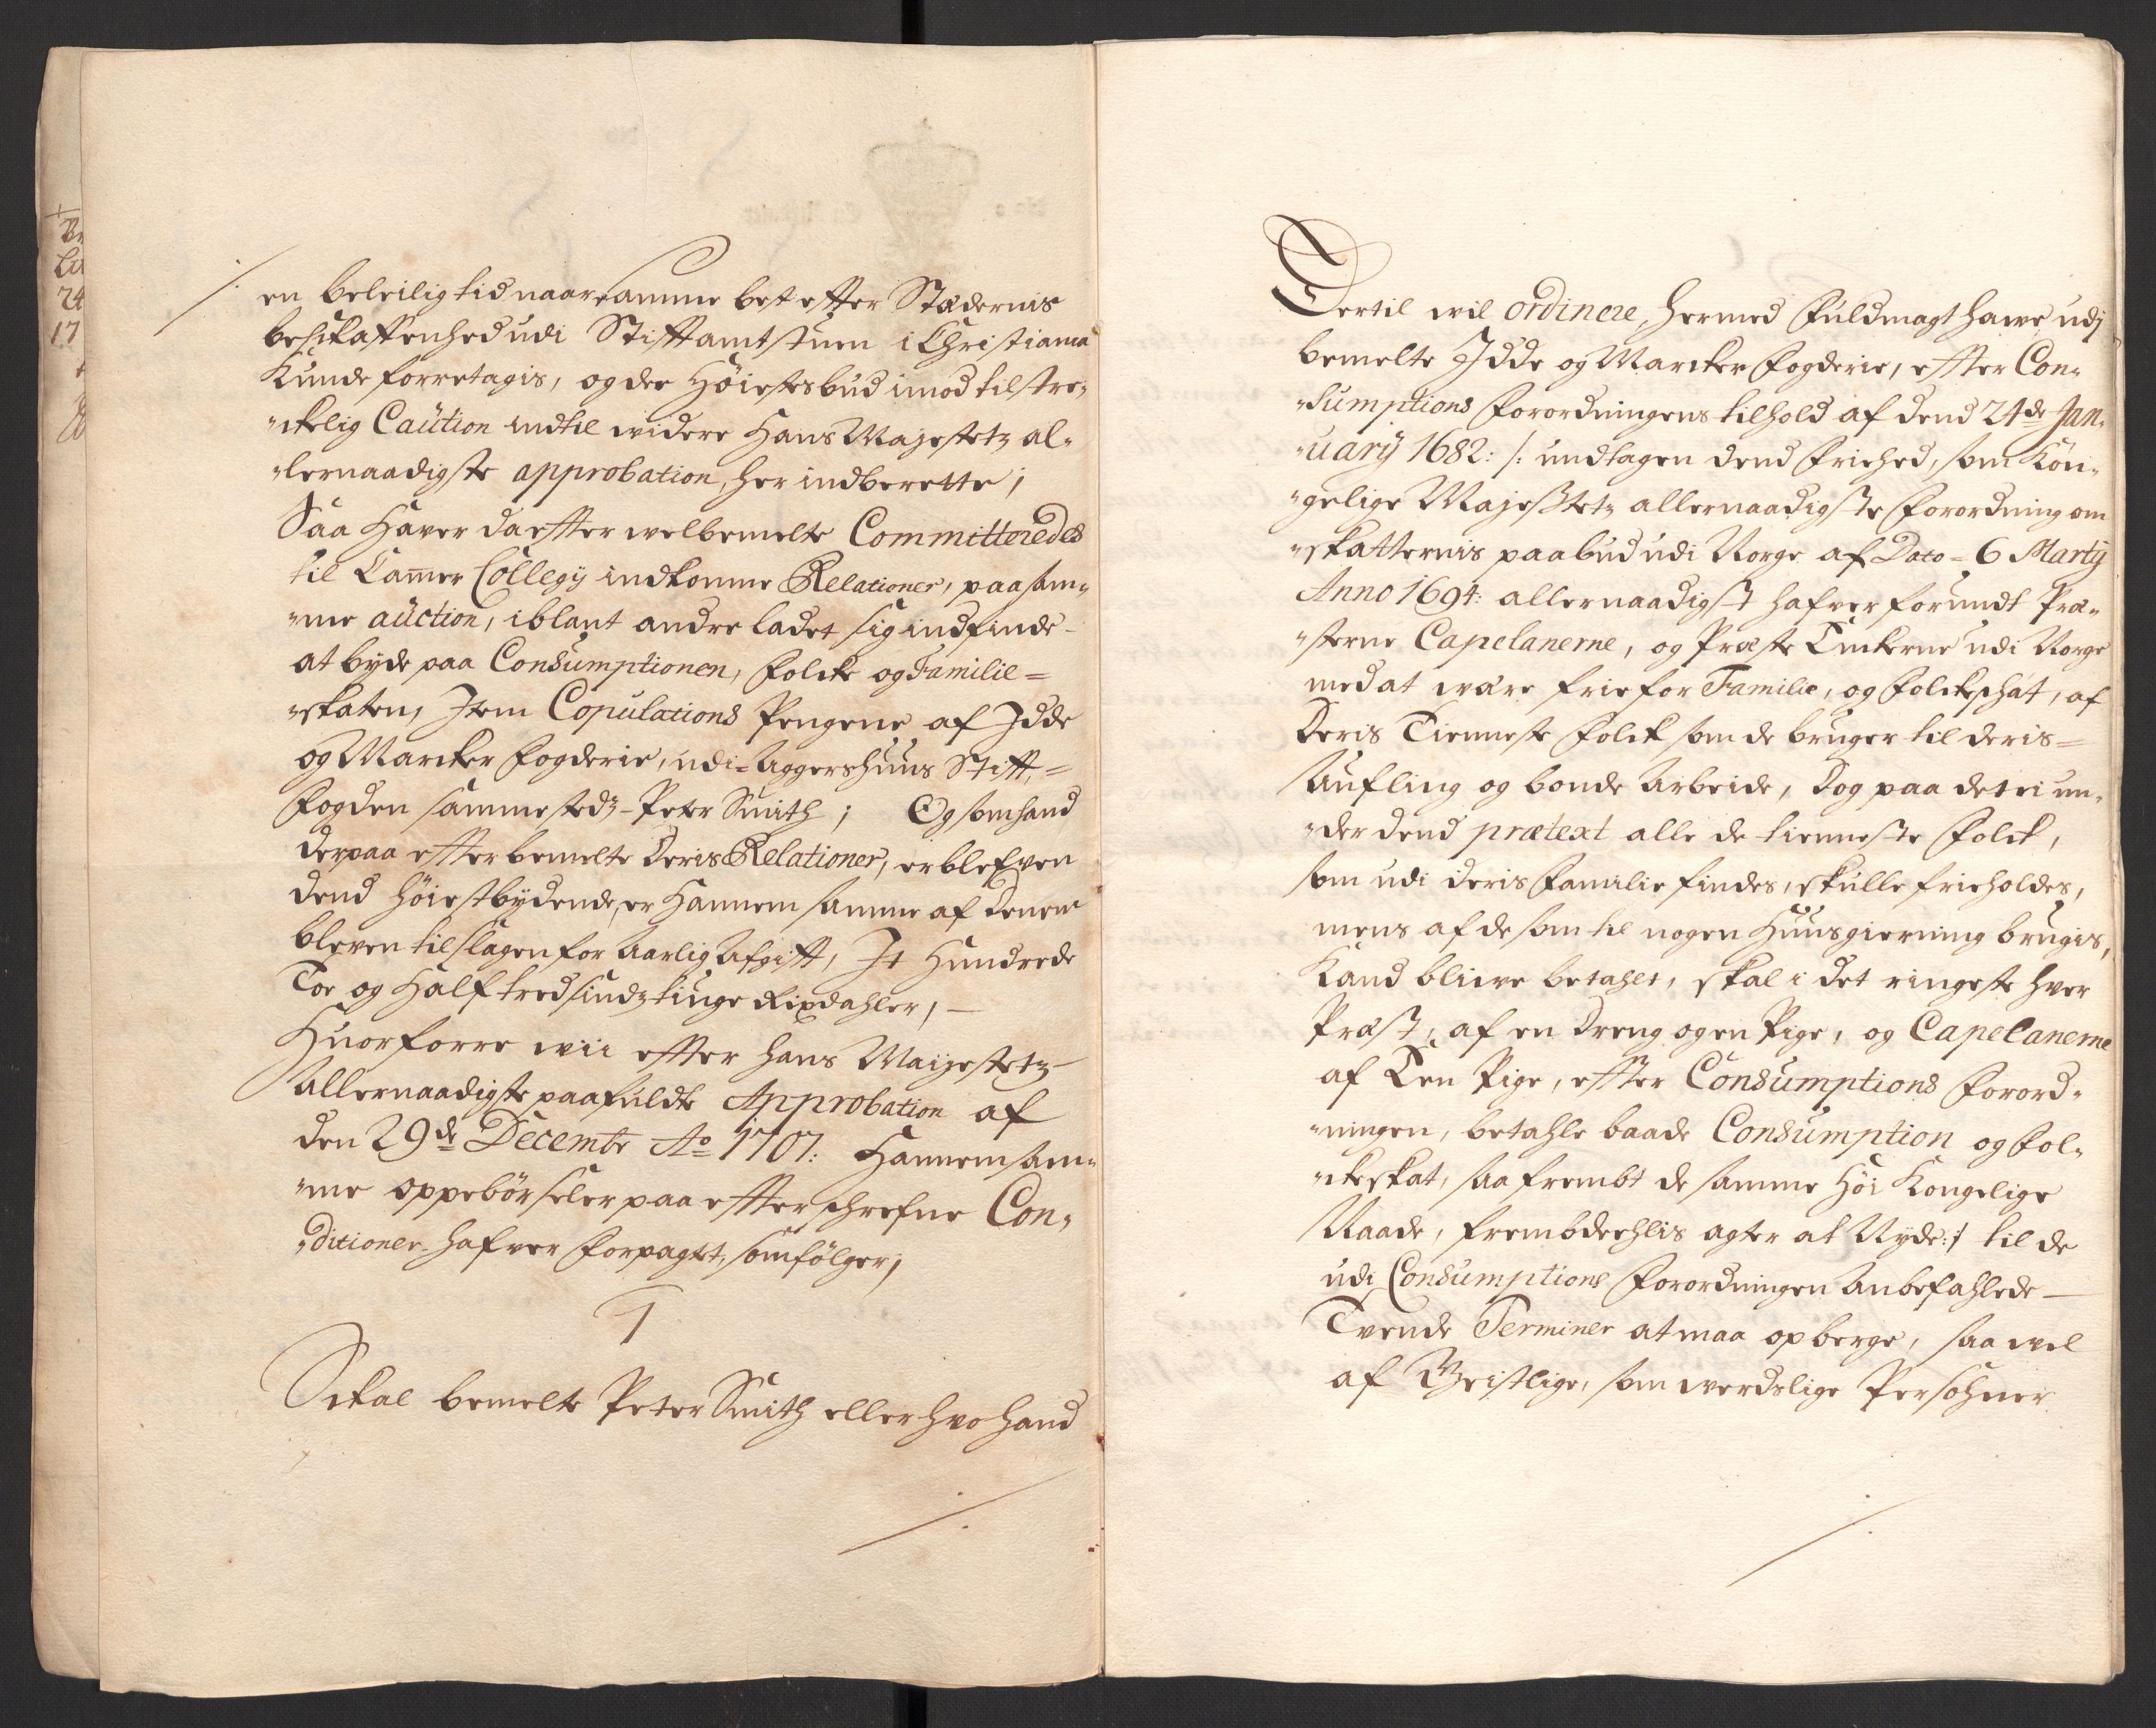 en beleilig tid naar samme best effter Stædernis
beskaffenhed udi Stifftamtstuen i Christiania
Kunde forretagis, og der Höiestesbud imod tilstre„
„ckelig Caution indtil widere Hans Majestetz al„
„lernaadigste approbation, her indberette;
Saa Haver da effter welbemelte Committeredes
til Cammer Collegij indkomne Relationer, paa sam„
„me auction, iblant andre ladet sig indfinde
at byde paa Consumptionen, Folcke og Familie=
„skaten, Item Copulations Pengene af Idde
og Marcker Fogderie, udi Aggershuus Stifft,=
Fogden sammestedz Peter Smith; Og som hand
derpaa effter bemelte Deris Relationer, er blefven
dend höiestbydende, er Hannem samme af Dennem
bleven tilslagen for Aarlig Afgifft, It Hundrede
Toe og Halftredsindztiuge Rixdahler,
Huorforre wii effter hans Maijestetz
Allernaadigste paafuldte Approbation af
den 29de Decembr Ao 1707: Hannem sam„
„me oppebörseler paa efterschrefne Con„
„ditioner hafver Forpagtet, som fölger,
1
Schal bemelte Peter Smith eller hvo hand
Dertil wil ordinere, hermed Fuldmagt hawe udj
bemelte Idde og Marcker Fogderie, effter Con„
„sumptions Forordningens tilhold af dend 24de Jan„
„uarij 1682: /: undtagen dend Friehed, som Kön„
„gelige Majestetz allernaadigste Forordning om
„skatternis paabud udi Norge af Dato 6 Martij
Anno 1694: allernaadigst hafver forundt Præ„
„sterne Capelanerne, og Præste Enckerne udi Norge
med at være frie for Familie, og Folckschat, af
Deris Tienneste Folck som de bruger til deris
Aufling og bonde Arbeide, Dog paa det ei un„
„der dend prætext alle de tienneste Folck,
som udi deris Familie findes, skulle frieholdes,
mens af de som til nogen Huusgierning brugis,
Kand bliwe betahlt, skal i det ringeste hver
Præst, af en Dreng og en Pige, og Capelanerne
af Een Pige, effter Consumptions Forord„
„ningen, betahle baade Consumption og Fol„
„ckeskat, saafrembt de samme Höi Kongelige
Naade, frembdeehlis agter at Nyde:/ til de
udi Consumptions Forordningen Anbefahlede
Tvende Terminer at maa opberge, saa wel
af Geistlige, som werdslige Persohner